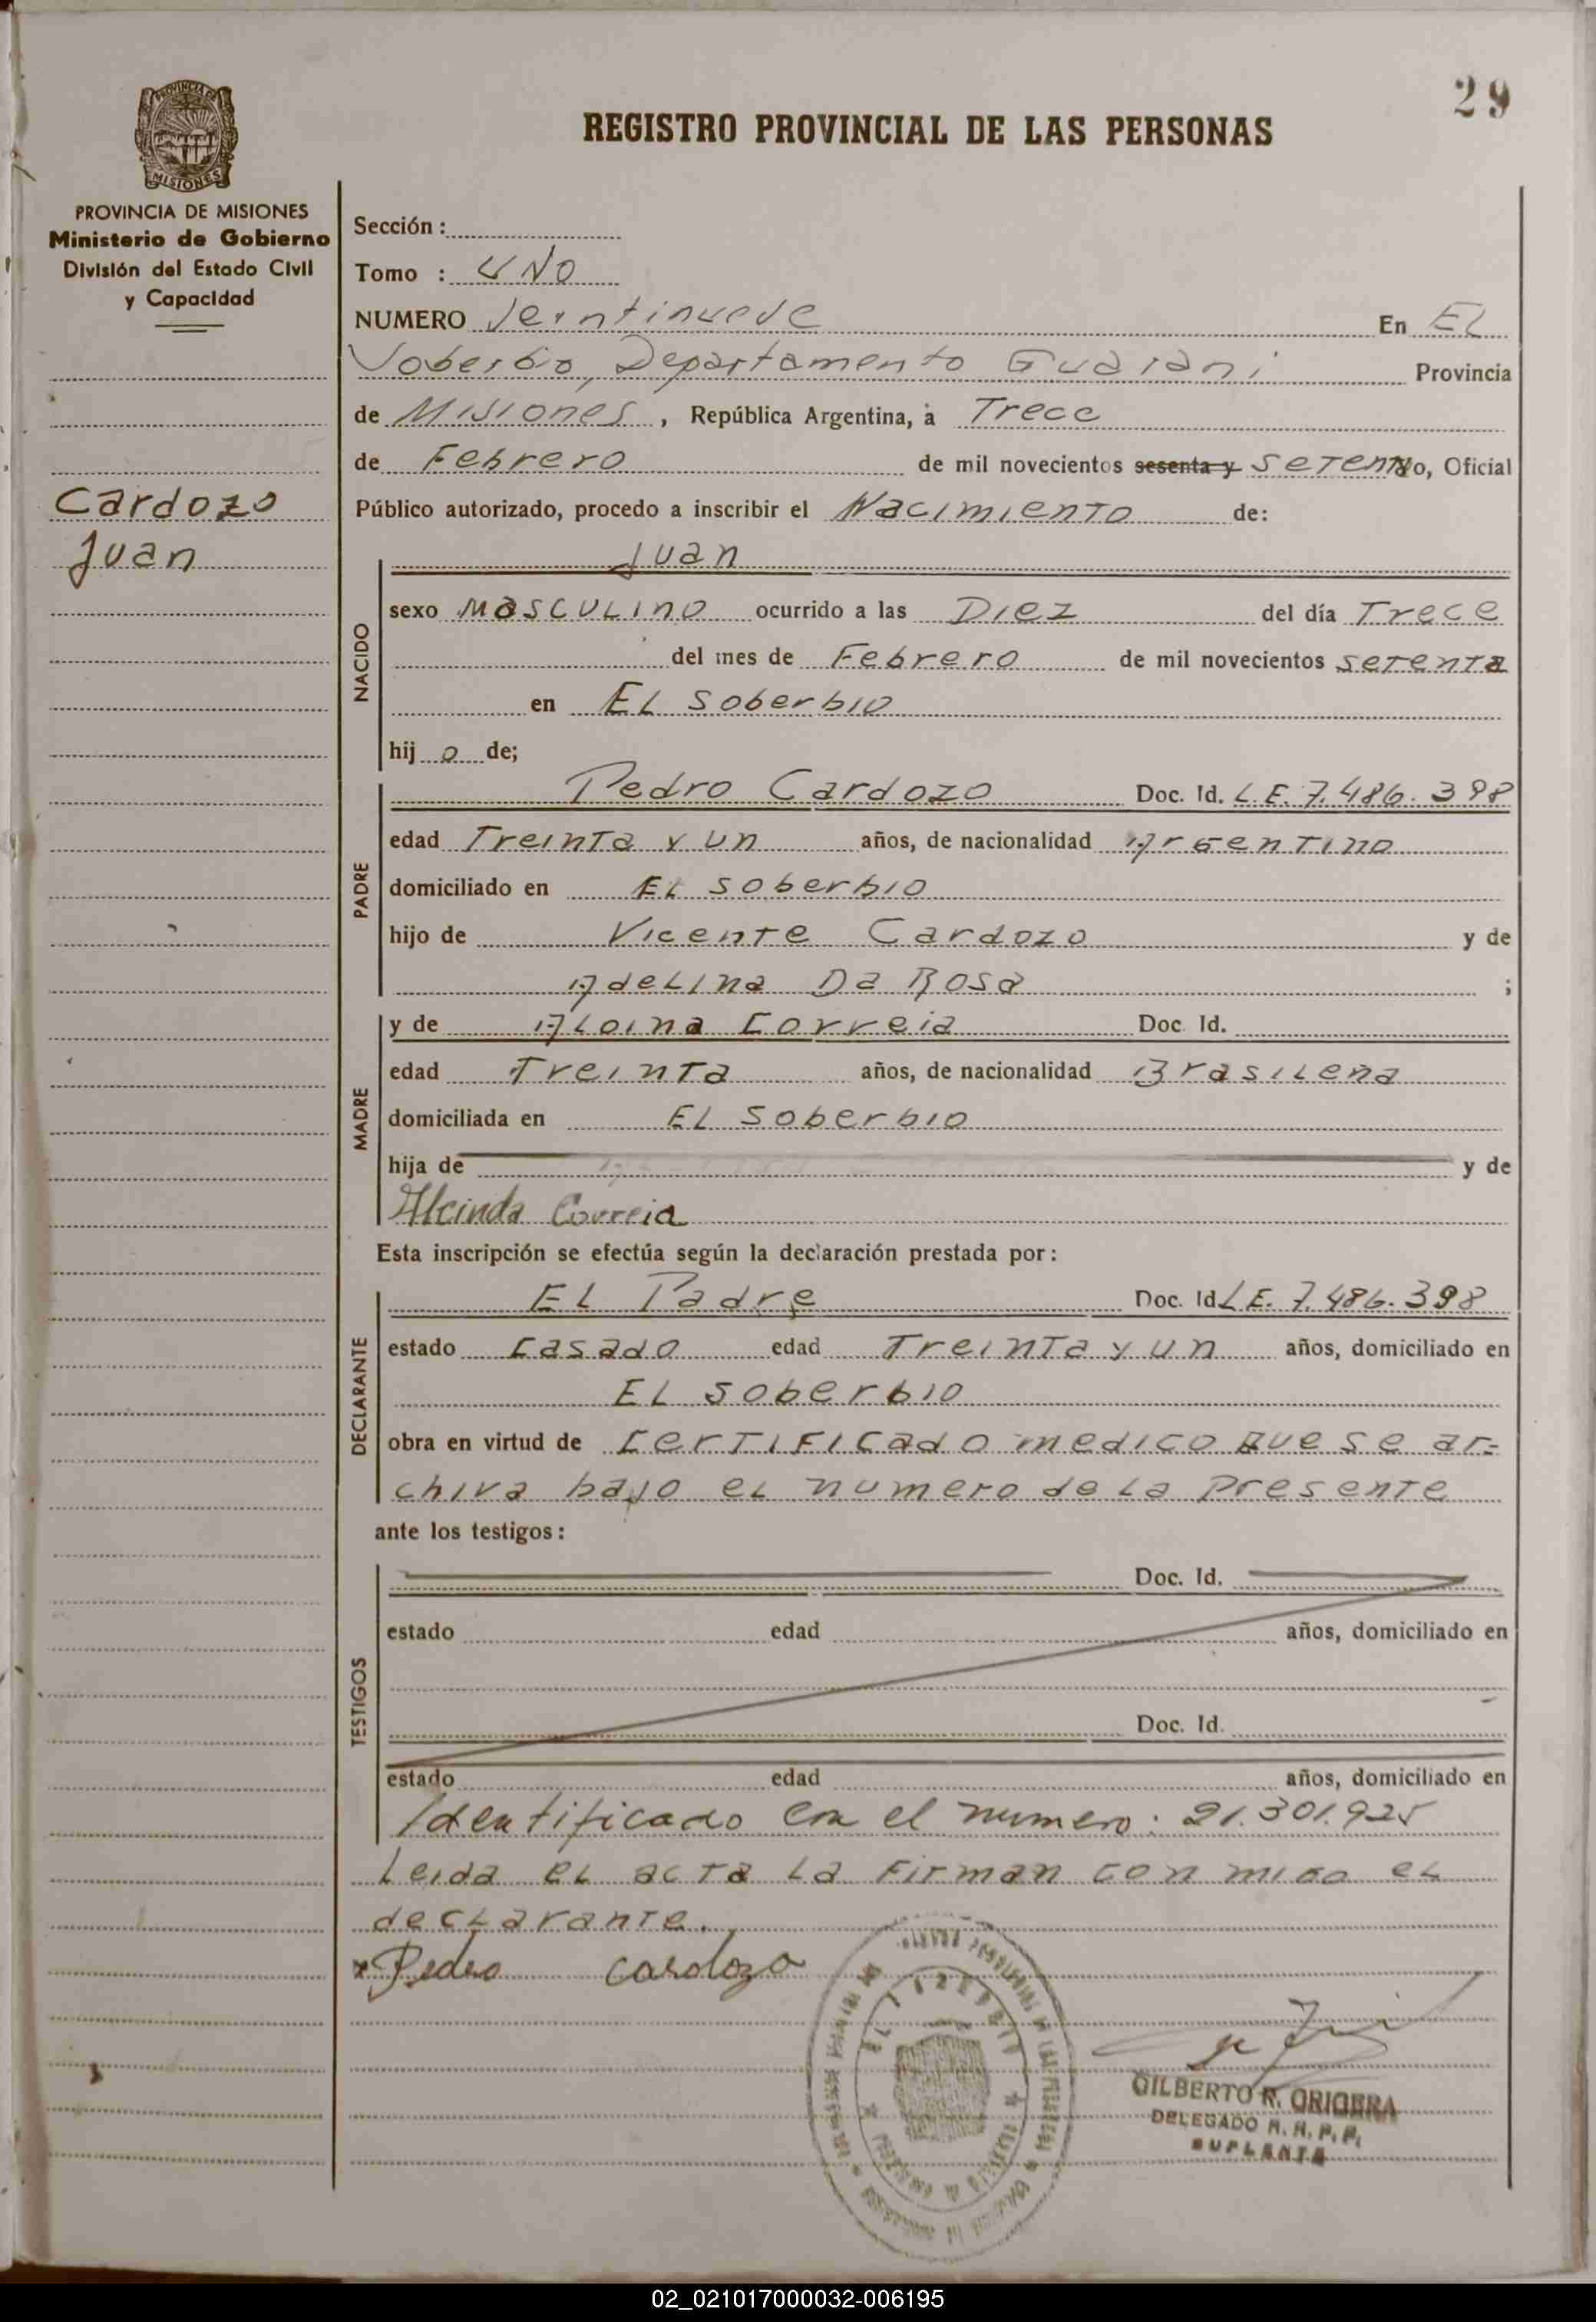 29
REGISTRO PROVINCIAL DE LAS PERSONAS
PROVINCIA DE MISIONES
PROVINCIA DE MISIONES
Ministerio de Gobierno
División del Estado Civil
y Capacidad
Cardozo
Juan
Sección :
Tomo : UNO
NUMERO Veintinueve En EL
Soberbio, Departamento Guarani Provincia
de Misiones, República Argentina, a Trece
de Febrero de mil novecientos sesenta y Setenta yo, Oficial
Público autorizado, procedo a inscribir el Nacimiento de:
NACIDO
Juan
sexo masculino ocurrido a las Diez del día Trece
del mes de Febrero de mil novecientos setenta
en EL Soberbio
hijo de;
PADRE
Pedro Cardozo Doc. Id. L.E. 7.486.398
edad Treinta y un años, de nacionalidad Argentino
domiciliado en EL soberbio
hijo de Vicente Cardozo y de
Adelina Da Rosa ;
MADRE
y de Aloina Correia Doc. Id.
edad Treinta años, de nacionalidad Brasileña
domiciliada en EL Soberbio
hija de y de
Alcinda Correia
Esta inscripción se efectúa según la declaración prestada por:
DECLARANTE
EL Padre Doc. Id L.E. 7.486.398
estado casado edad Treinta y un años, domiciliado en
EL soberbio
obra en virtud de certificado medico que se ar=
chiva bajo el numero de la presente
ante los testigos:
TESTIGOS
Doc. Id.
estado edad años, domiciliado en
Doc. Id.
estado edad años, domiciliado en
Identificado con el numero: 21.301.925
Leida el acta la firman con migo el
declarante.
Pedro cardozo
GILBERTO R. ORIGERA
DELEGADO R. N. P. P.
SUPLENTE
02_021017000032-006195